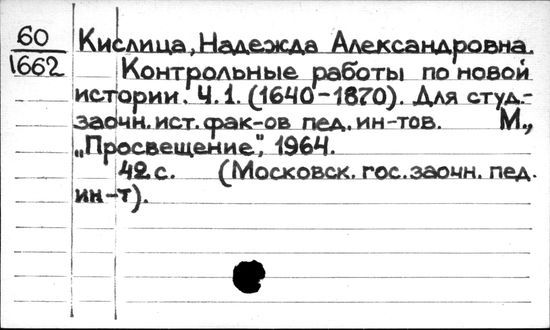 60
1662
Кислица, Надежда Александровна.
Контрольные работы по новой
истории. Ч.1. (1640-1870). Для студ.-
заочн. ист. фак-ов пед. ин-тов. М.,
„Просвещение", 1964.
42 с. (Московск. гос. заочн. пед.
ин-т).